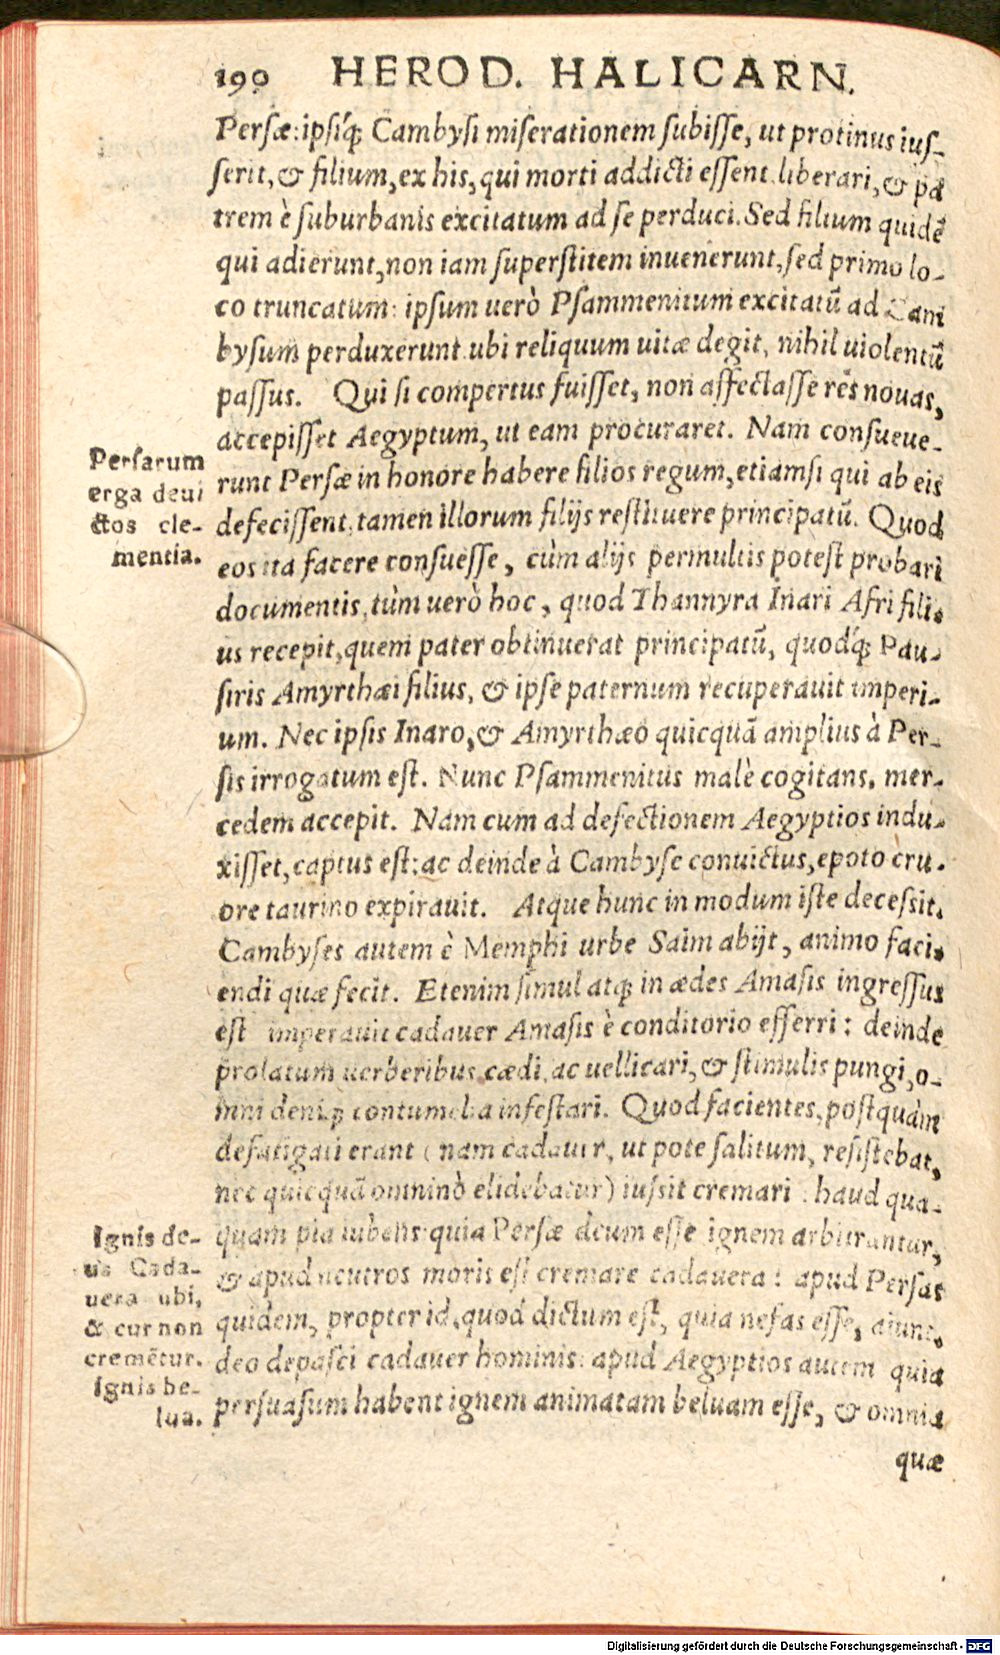 190 HEROD. HALICARN.
Persæ: ipsíq; Cambysi miserationem subisse, ut protinus ius-
serit, & filium, ex his, qui morti addicti essent liberari, & pa
trem è suburbanis excitatum ad se perduci. Sed filium quidē
qui adierunt, non iam superstitem inuenerunt, sed primo lo-
co truncatum: ipsum uerò Psammenitum excitatū ad Cam
bysum perduxerunt. ubi reliquum uitæ degit, nihil uiolentū
passus. Qui si compertus fuisset, non affectasse res nouas,
accepisset Aegyptum, ut eam procuraret. Nam consueue-
runt Persæ in honore habere filios regum, etiamsi qui ab eis
defecissent, tamen illorum filijs restituere principatū. Quod
eos ita facere consuesse, cùm alijs permultis potest probari
documentis, tùm uerò hoc, quod Thannyra Inari Afri fili-
us recepit, quem pater obtinuerat principatū, quodq́; Pau-
siris Amyrthæi filius, & ipse paternum recuperauit imperi-
um. Nec ipsis Inaro, & Amyrthæo quicquā amplius à Per-
sis irrogatum est. Nunc Psammenitus malè cogitans, mer-
cedem accepit. Nam cum ad defectionem Aegyptios indu-
xisset, captus est: ac deinde à Cambyse conuictus, epoto cru-
ore taurino expirauit. Atque hunc in modum iste decessit.
Cambyses autem è Memphi urbe Saim abijt, animo faci-
endi quæ fecit. Etenim simul atq; in ædes Amasis ingressus
est imperauit cadauer Amasis è conditorio efferri: deinde
prolatum uerberibus cædi, ac uellicari, & stimulis pungi, o-
mni deniq; contumelia infestari. Quod facientes, postquàm
defatigati erant (nam cadauer, ut pote salitum, resistebat,
nec quicquā omninò elidebatur) iussit cremari. haud qua-
quam pia iubens: quia Persæ deum esse ignem arbitrantur,
& apud neutros moris est cremare cadauera: apud Persas
quidem, propter id, quod dictum est, quia nefas esse, aiunt,
deo depasci cadauer hominis: apud Aegyptios autem quia
persuasum habent ignem animatam beluam esse, & omnia
quæ
Persarum
erga deui
ctos cle-
mentia.
Ignis de-
us Cada-
uera ubi,
& cur non
cremētur.
Ignis be-
lua.
Digitalisierung gefördert durch die Deutsche Forschungsgemeinschaft - DFG